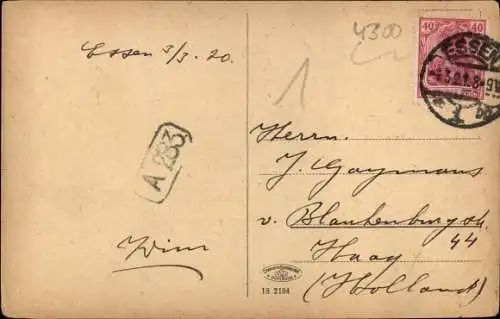 4300
40 40
ESSEN
Essen 3/3. 20.
1
A 233
Herrn.
J. Gaymans
v. Blankenburg str.
44
Wim
Haag
(Holland)
18 2194